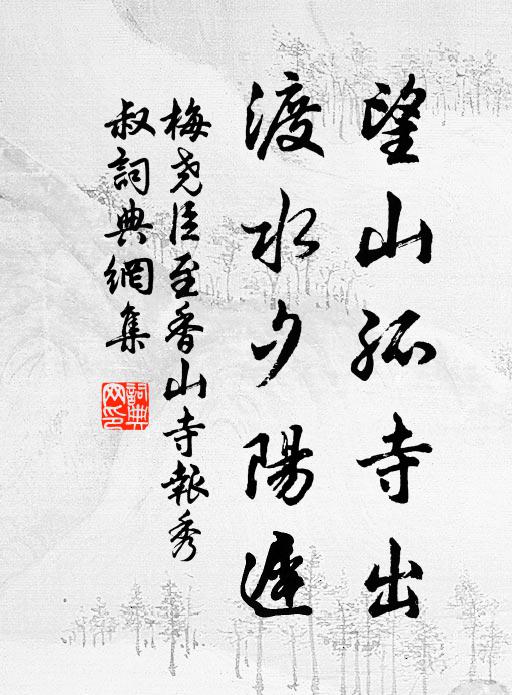 望山孤寺出
渡水夕陽遲
梅尧臣至香山寺報秀
叔詞典網集
詞典
网印